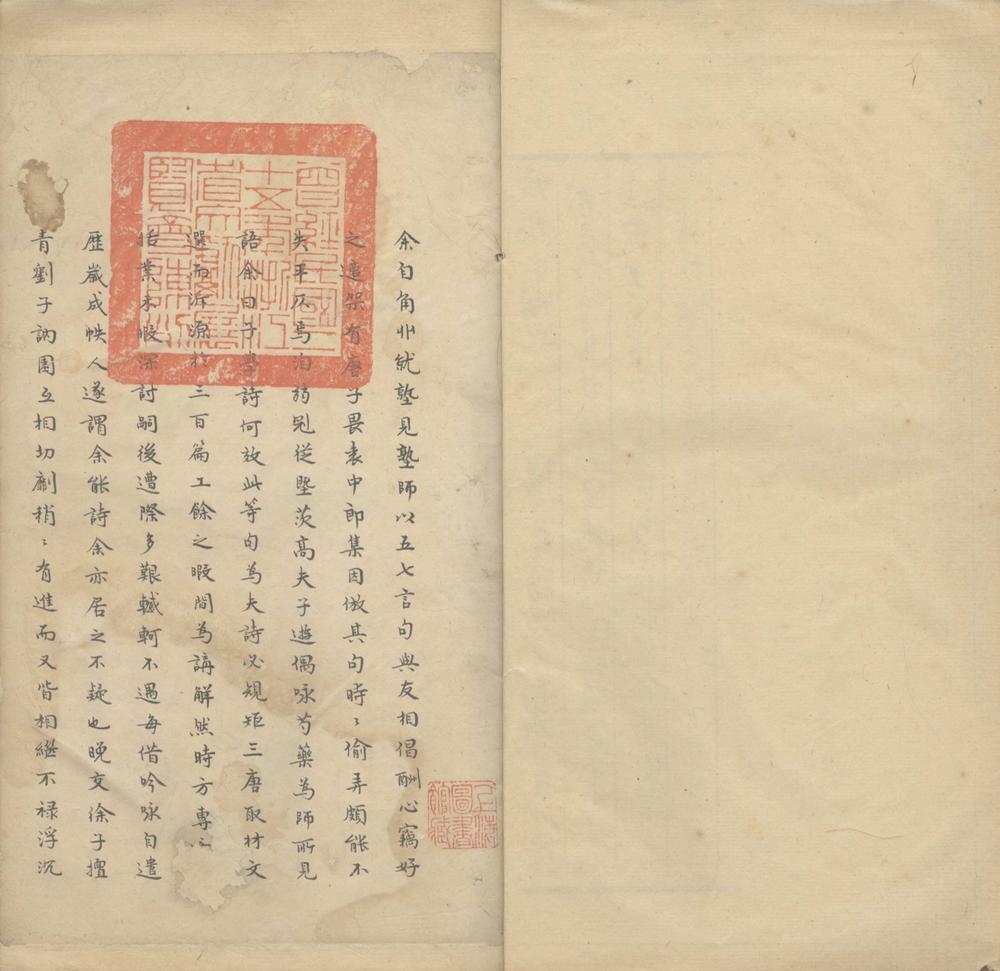 余自角丱就塾見塾師以五七言句與友相倡酬心竊好
之遠架有唐子畏袁中郎集因倣其句時〻偷弄頗能不
失平仄焉洎弱冠從堅茨高夫子遊偶咏芍藥為師所見
語余曰子學詩何效此等句為夫詩必規矩三唐取材文
選而泝源於三百篇工餘之暇間為講解然時方專心
括業未暇深討嗣後遭際多艱轗軻不遇每借吟咏自遣
歷歲成帙人遂謂余能詩余亦居之不疑也晚交徐子擅
青劉子訥園互相切劘稍〻有進而又皆相繼不祿浮沉
曾經民國二
十五年浙江
省文獻展覽
會陳列
圖書
館藏